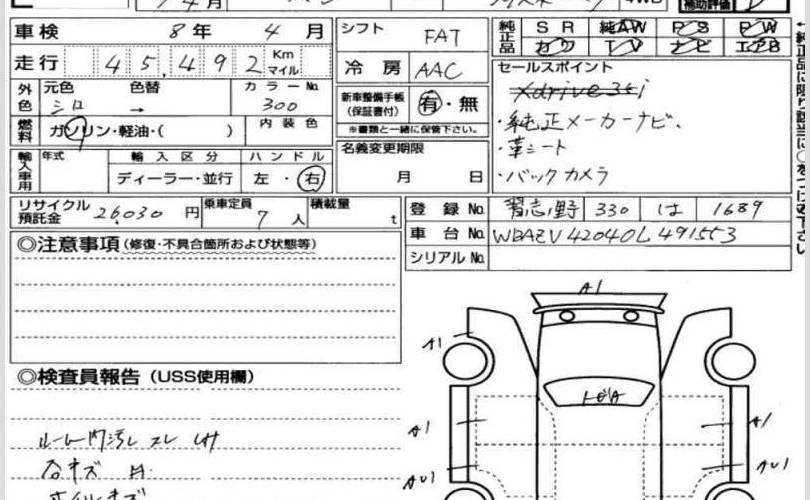 月
補助評価 D
車検 8年 4月 シフト FAT 純正品 SR 純AW PS PW
カワ TV ナビ エアB
走行 45,492 Km マイル 冷房 AAC
セールスポイント
Xdrive35i
外色 元色 色替 カラーNo.
シロ → 300
新車整備手帳(保証書付) 有・無
※書類と一緒に保管下さい。
・純正メーカーナビ、
・革シート
・バックカメラ
燃料 ガソリン・軽油・( ) 内装色
名義変更期限
月 日
輸入車用 年式 輸入区分 ハンドル
ディーラー・並行 左・右
リサイクル預託金 26,030円 乗車定員 7人 積載量 t
登録No. 習志野 330 は 1689
車台No. WBAZV42040L491553
シリアルNo.
◎注意事項(修復・不具合個所および状態等)
◎検査員報告(USS使用欄)
ルーム内汚レ スレ
A1
A1
A1
A1
AU1
AU1